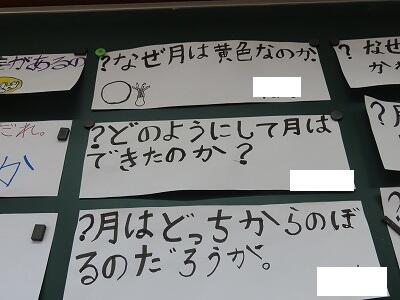 があるの
?なぜ月は黄色なのか。
?なぜ
か
だれ。
か
?どのようにして月は
できたのか?
?
?月はどっちからのぼ
るのだろうか。